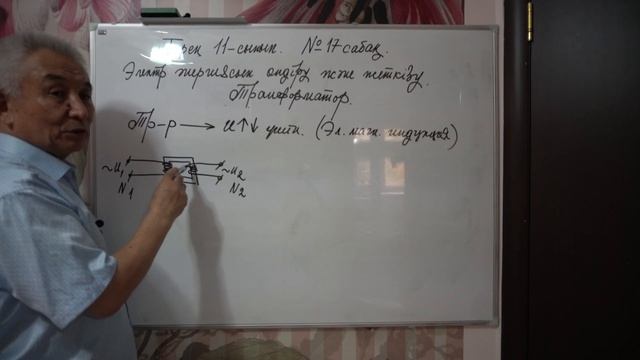 11-сынып. №17 сабақ.
Электр энергиясын өндіру және жеткізу.
Трансформатор.
Тр-р → u↑↓ үшін. (Эл. магн. индукция)
~u₁ ~u₂
N₁ N₂